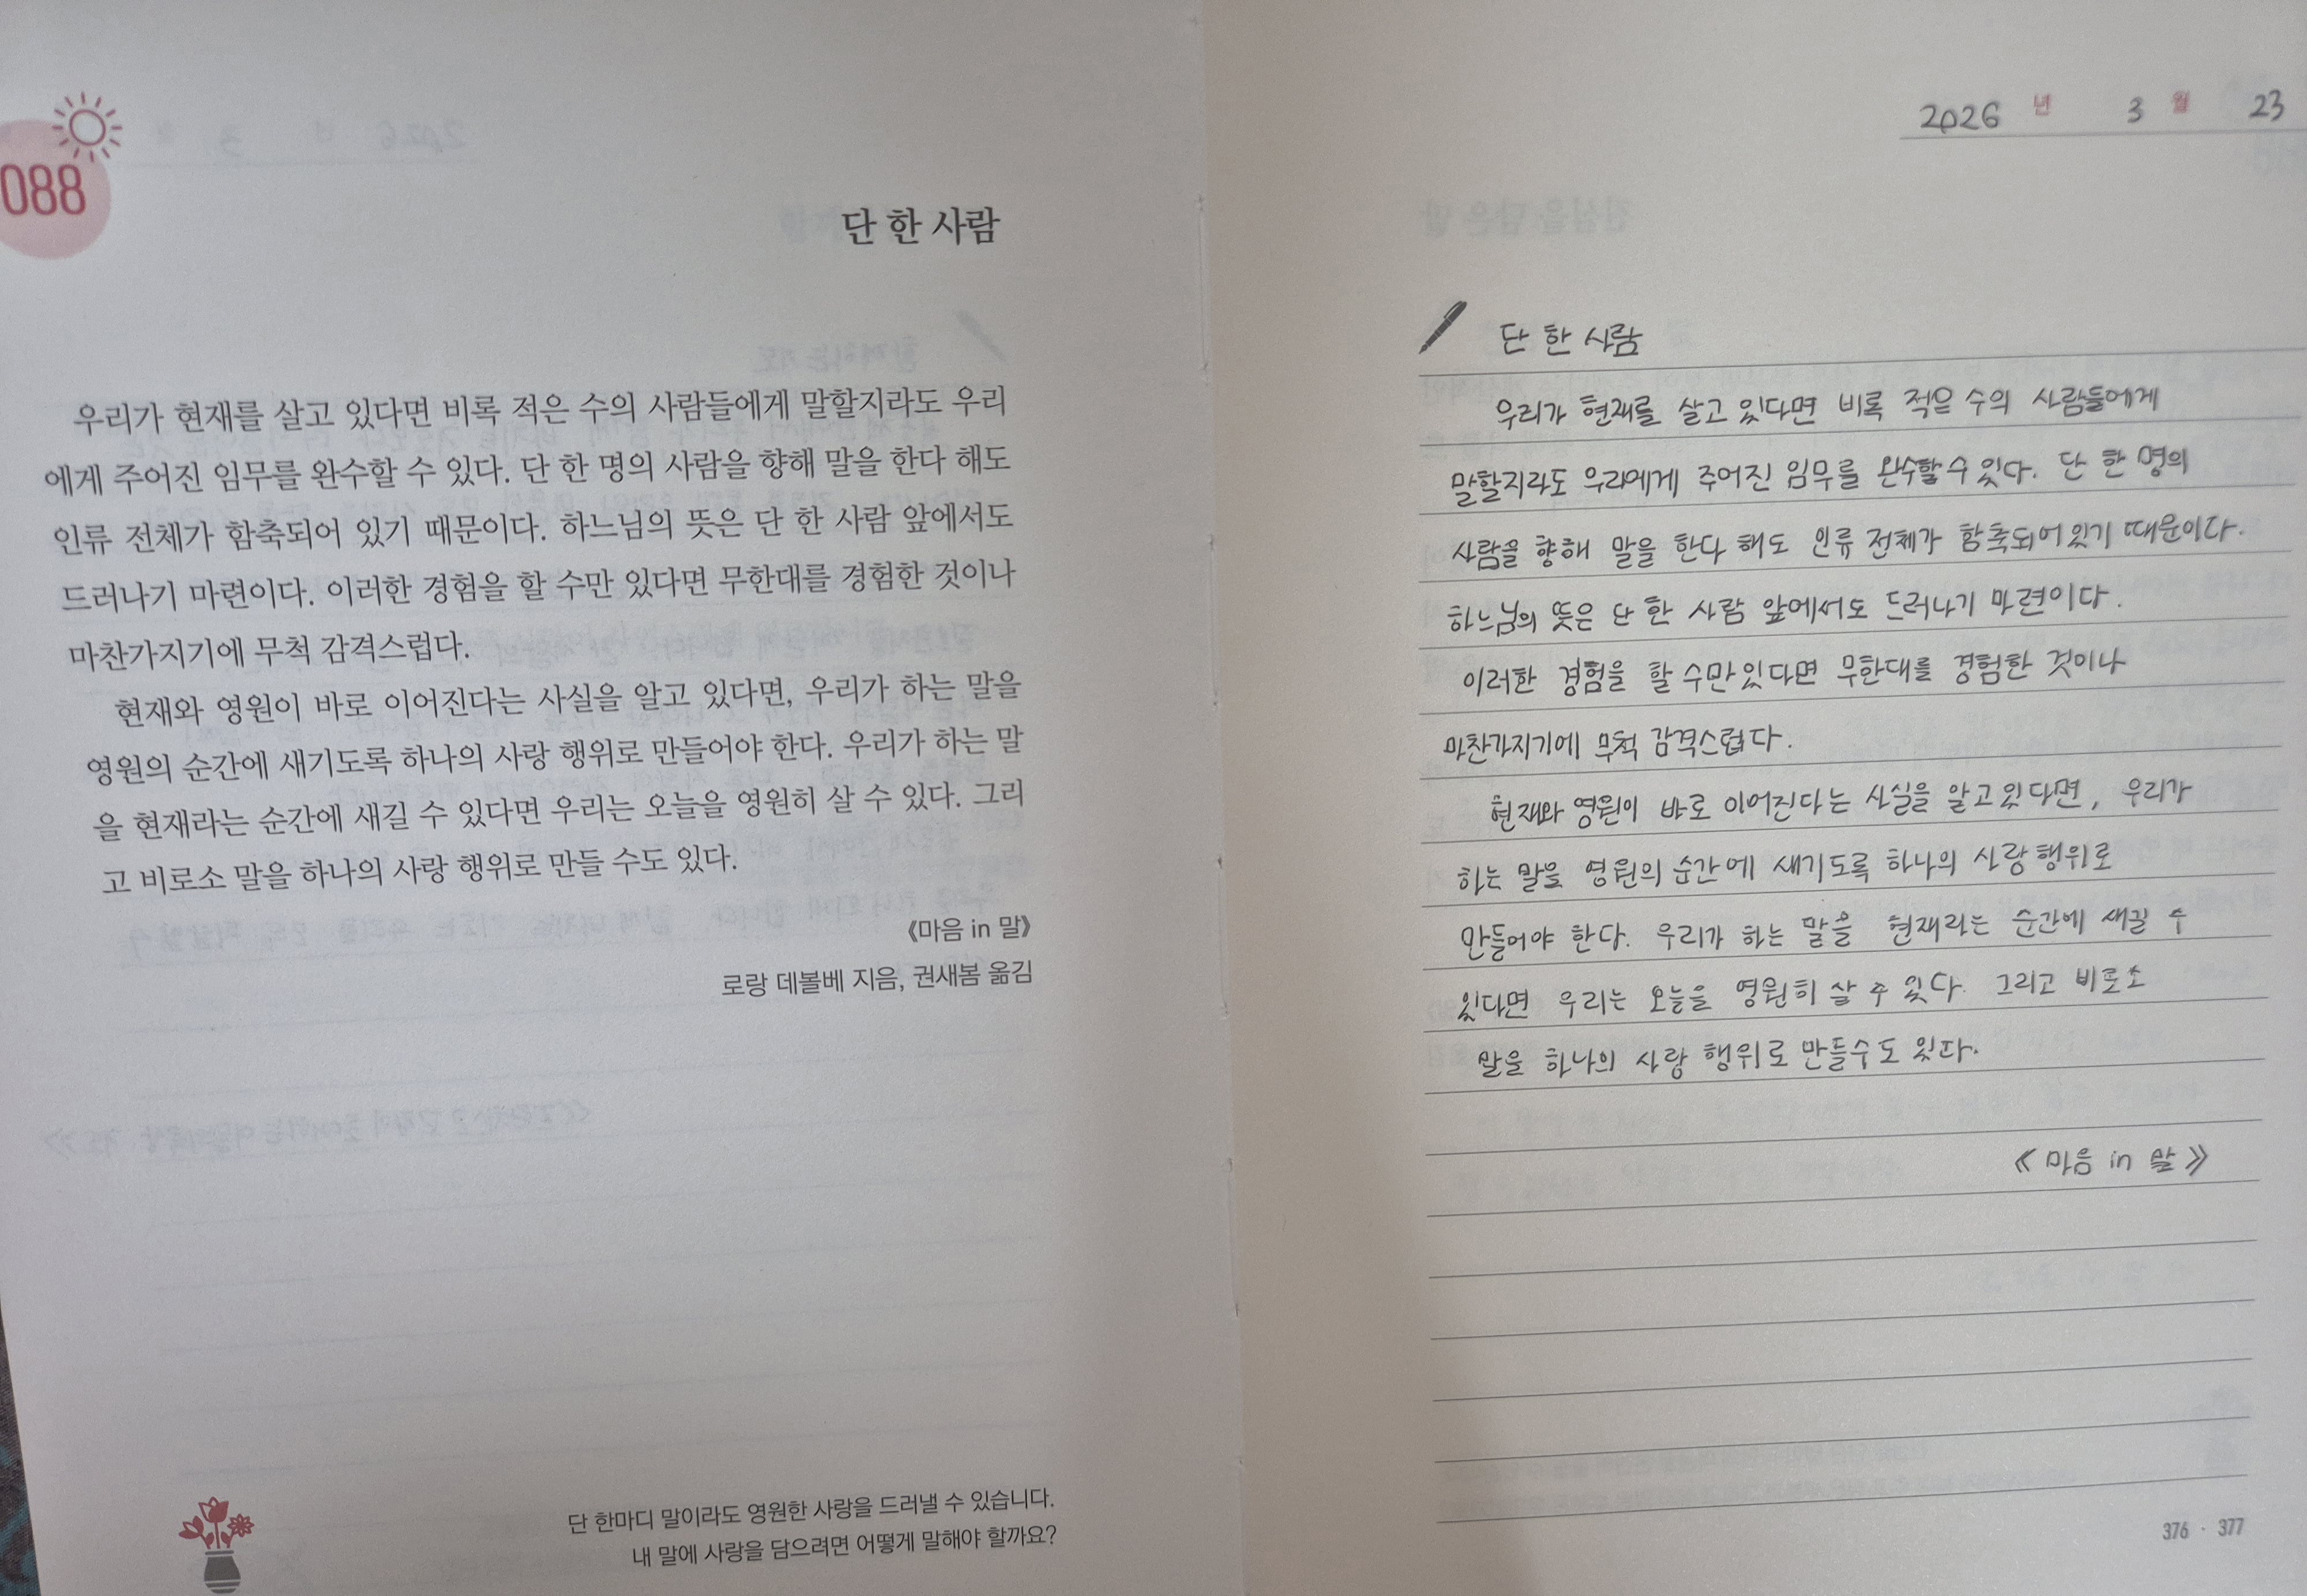 088
단 한 사람
우리가 현재를 살고 있다면 비록 적은 수의 사람들에게 말할지라도 우리
에게 주어진 임무를 완수할 수 있다. 단 한 명의 사람을 향해 말을 한다 해도
인류 전체가 함축되어 있기 때문이다. 하느님의 뜻은 단 한 사람 앞에서도
드러나기 마련이다. 이러한 경험을 할 수만 있다면 무한대를 경험한 것이나
마찬가지기에 무척 감격스럽다.
현재와 영원이 바로 이어진다는 사실을 알고 있다면, 우리가 하는 말을
영원의 순간에 새기도록 하나의 사랑 행위로 만들어야 한다. 우리가 하는 말
을 현재라는 순간에 새길 수 있다면 우리는 오늘을 영원히 살 수 있다. 그리
고 비로소 말을 하나의 사랑 행위로 만들 수도 있다.
《마음 in 말》
로랑 데볼베 지음, 권새봄 옮김
단 한마디 말이라도 영원한 사랑을 드러낼 수 있습니다.
내 말에 사랑을 담으려면 어떻게 말해야 할까요?
2026 년 3 월 23
단 한 사람
우리가 현재를 살고 있다면 비록 적은 수의 사람들에게
말할지라도 우리에게 주어진 임무를 완수할 수 있다. 단 한 명의
사람을 향해 말을 한다 해도 인류 전체가 함축되어 있기 때문이다.
하느님의 뜻은 단 한 사람 앞에서도 드러나기 마련이다.
이러한 경험을 할 수만 있다면 무한대를 경험한 것이나
마찬가지기에 무척 감격스럽다.
현재와 영원이 바로 이어진다는 사실을 알고 있다면, 우리가
하는 말을 영원의 순간에 새기도록 하나의 사랑 행위로
만들어야 한다. 우리가 하는 말을 현재라는 순간에 새길 수
있다면 우리는 오늘을 영원히 살 수 있다. 그리고 비로소
말을 하나의 사랑 행위로 만들수도 있다.
《마음 in 말》
376 · 377